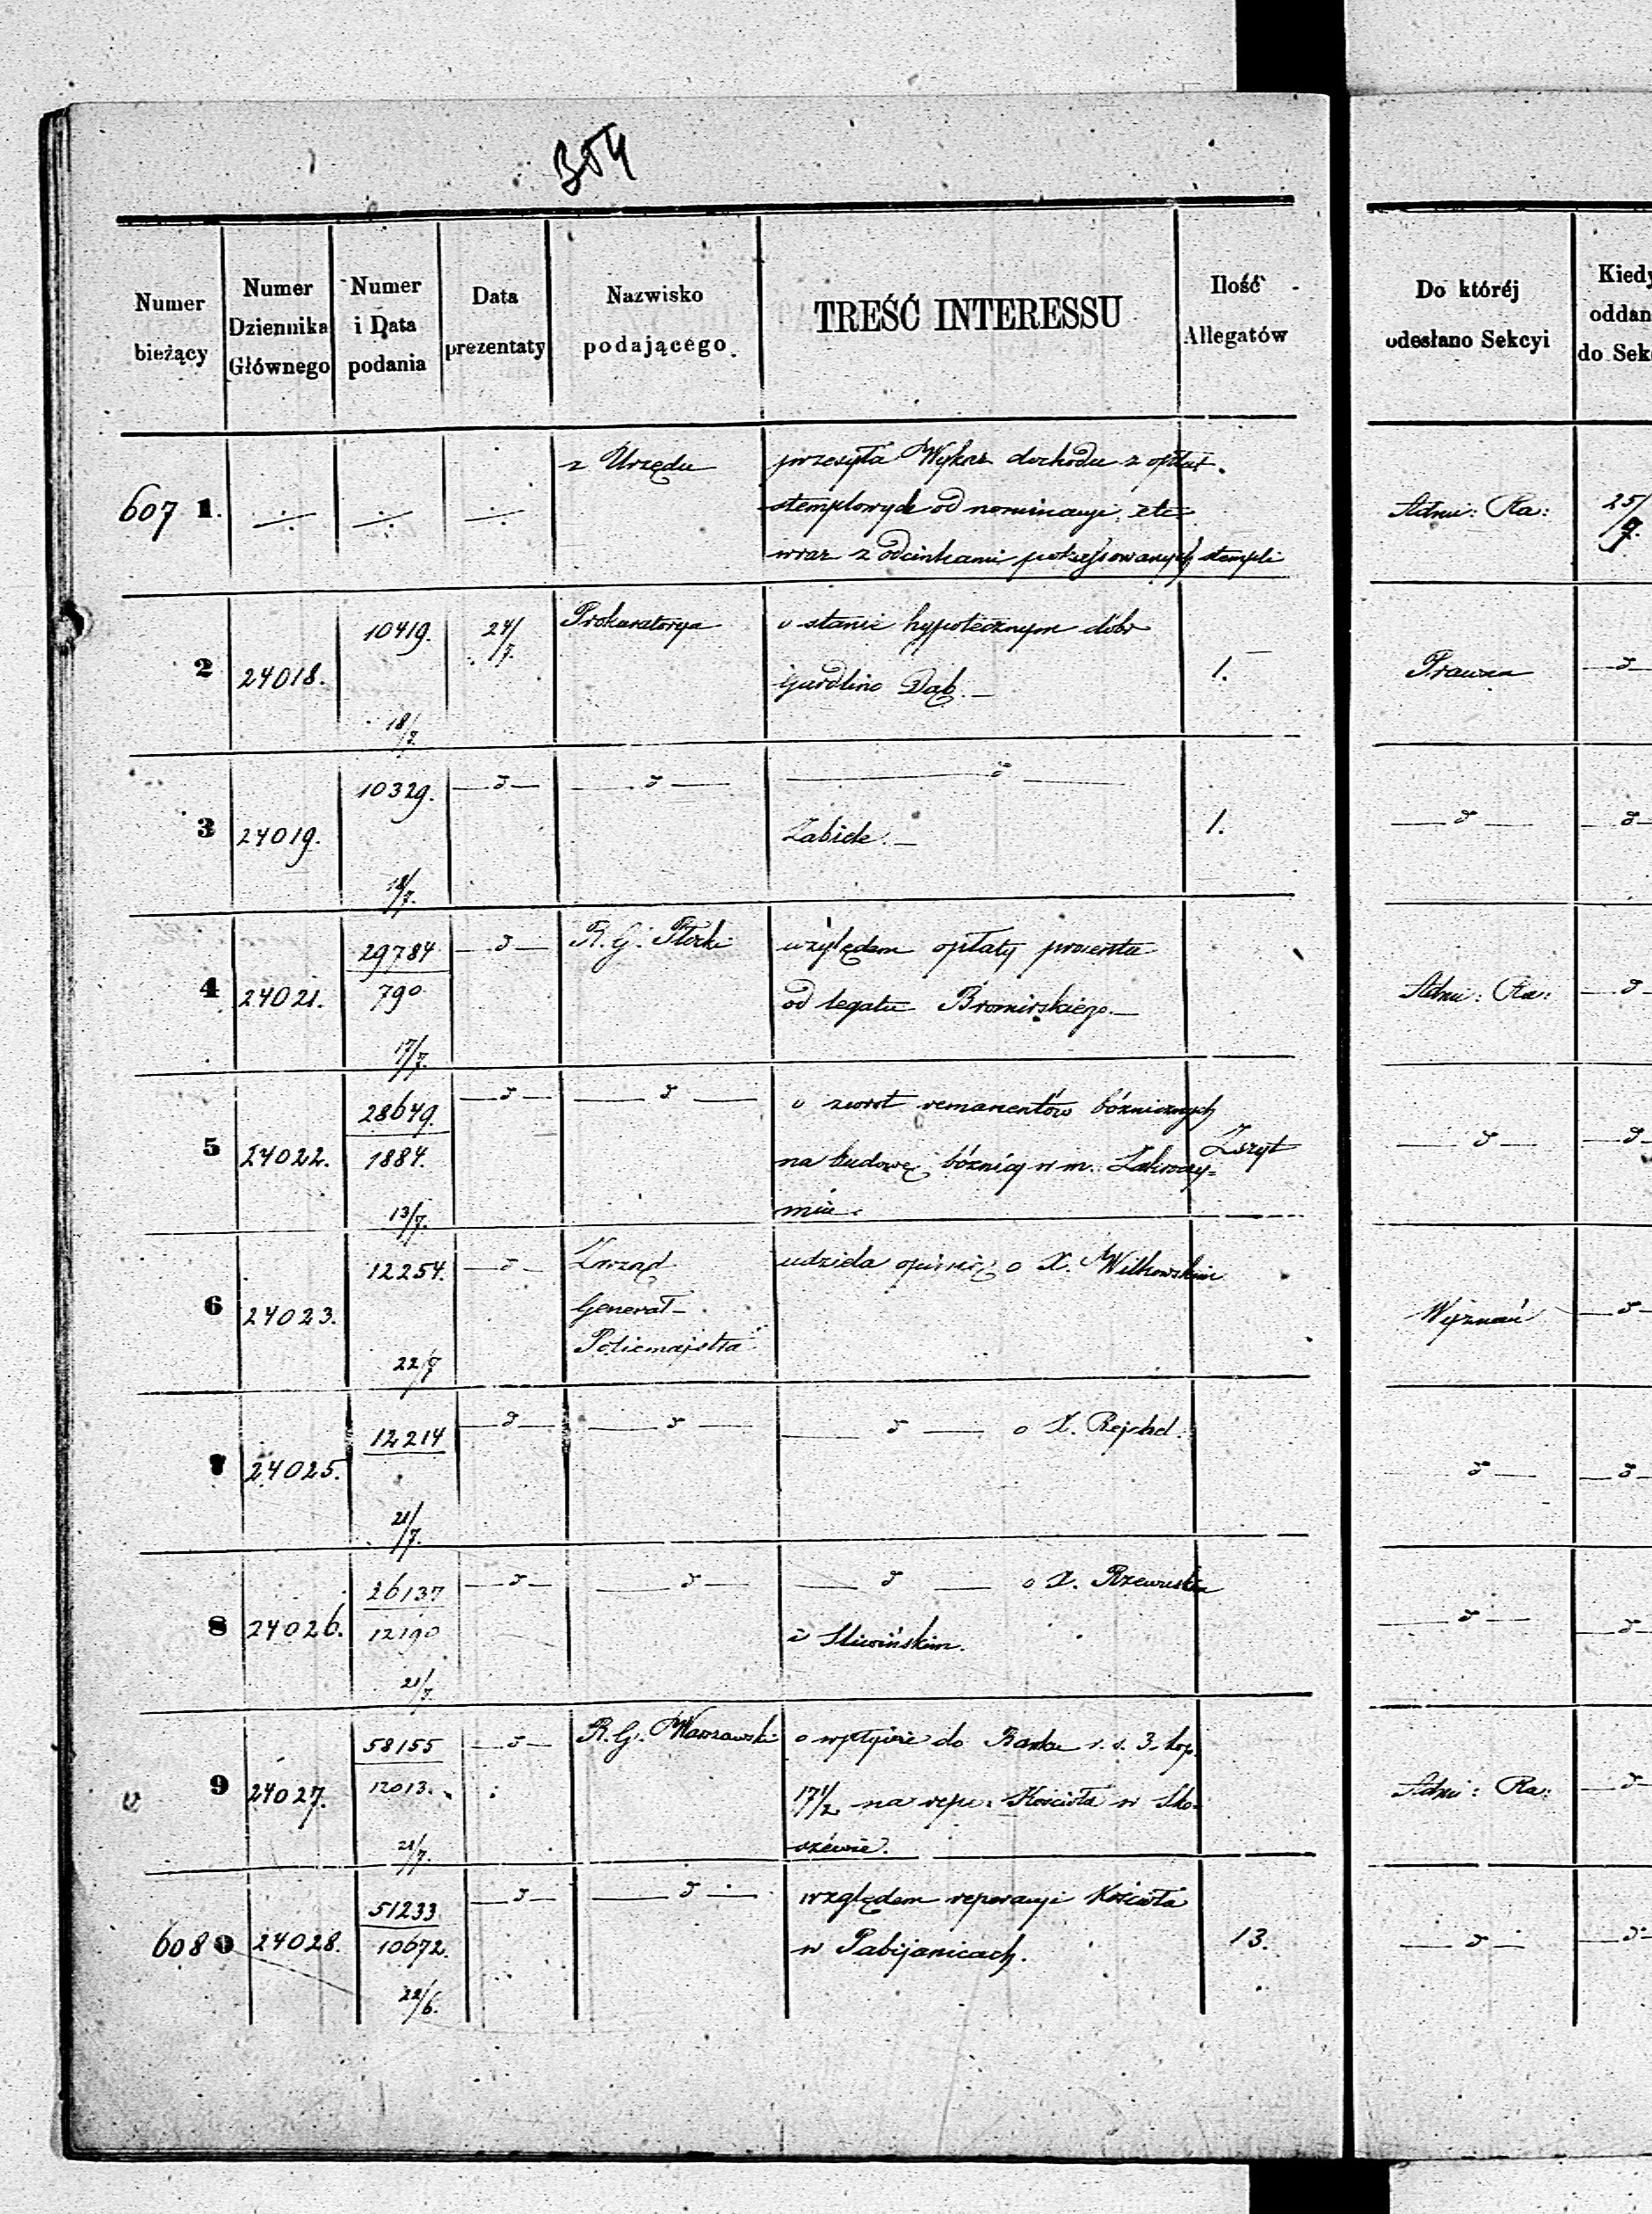 304
Numer bieżący | Numer Dziennika Głównego | Numer i Data podania | Data prezentaty | Nazwisko podającego. | TREŚĆ INTERESSU | Ilość Allegatów | Do któréj odesłano Sekcyi | Kiedy oddan do Sek
607 1. | ÷ | ÷ | ÷ | z Urzędu | przesyła Wykaz dochodu z opłat
stemplowych od nominacyi, etc
wraz z odcinkami pokassowanych stempli | Admi: Ra: | 25/7.
2 | 24018. | 10419. 18/7. | 24/7. | Prokuratorya | o stanie hypotecznym dóbr
Gurdlino Dąb. — | 1. | Prawna | — d —
3 | 24019. | 10329. 18/7. | — d — | — d — | — d —
Zabiele. — | 1. | — d — | — d —
4 | 24021. | 29784 790 17/7. | — d — | R. G. Płocki | względem opłaty procentu
od legatu Bromirskiego. — | Admi: Ra: | — d —
5 | 24022. | 28649. 1884. 13/7. | — d — | — d — | o zwrot remanentów bóżnicznych
na budowę bóżnicy w m. Zakroczy=
miu. | Zszyt | — d — | — d —
6 | 24023. | 12254. 22/7 | — d — | Zarząd
Generał-
Policmajstra | udziela opinię o X. Wilkowskim | Wyznań | — d —
7 | 24025. | 12214 21/7. | — d — | — d — | — d — o X. Rejchel. | — d — | — d —
8 | 24026. | 26137 12190 21/7. | — d — | — d — | — d — o X. Rzewuskim
i Sliwińskim. | — d — | — d —
9 | 24027. | 58155 12013. 21/7. | — d — | R. G. Warszawski | o wpłynie do Banku r. s. 3. kop.
17 1/2 na repe. Kościoła w Sko-
szewie. | Admi: Ra: | — d —
608 0 | 24028. | 51233 10672. 22/6. | — d — | — d — | względem reperacyi Kościoła
w Pabijanicach. | 13. | — d — | — d —